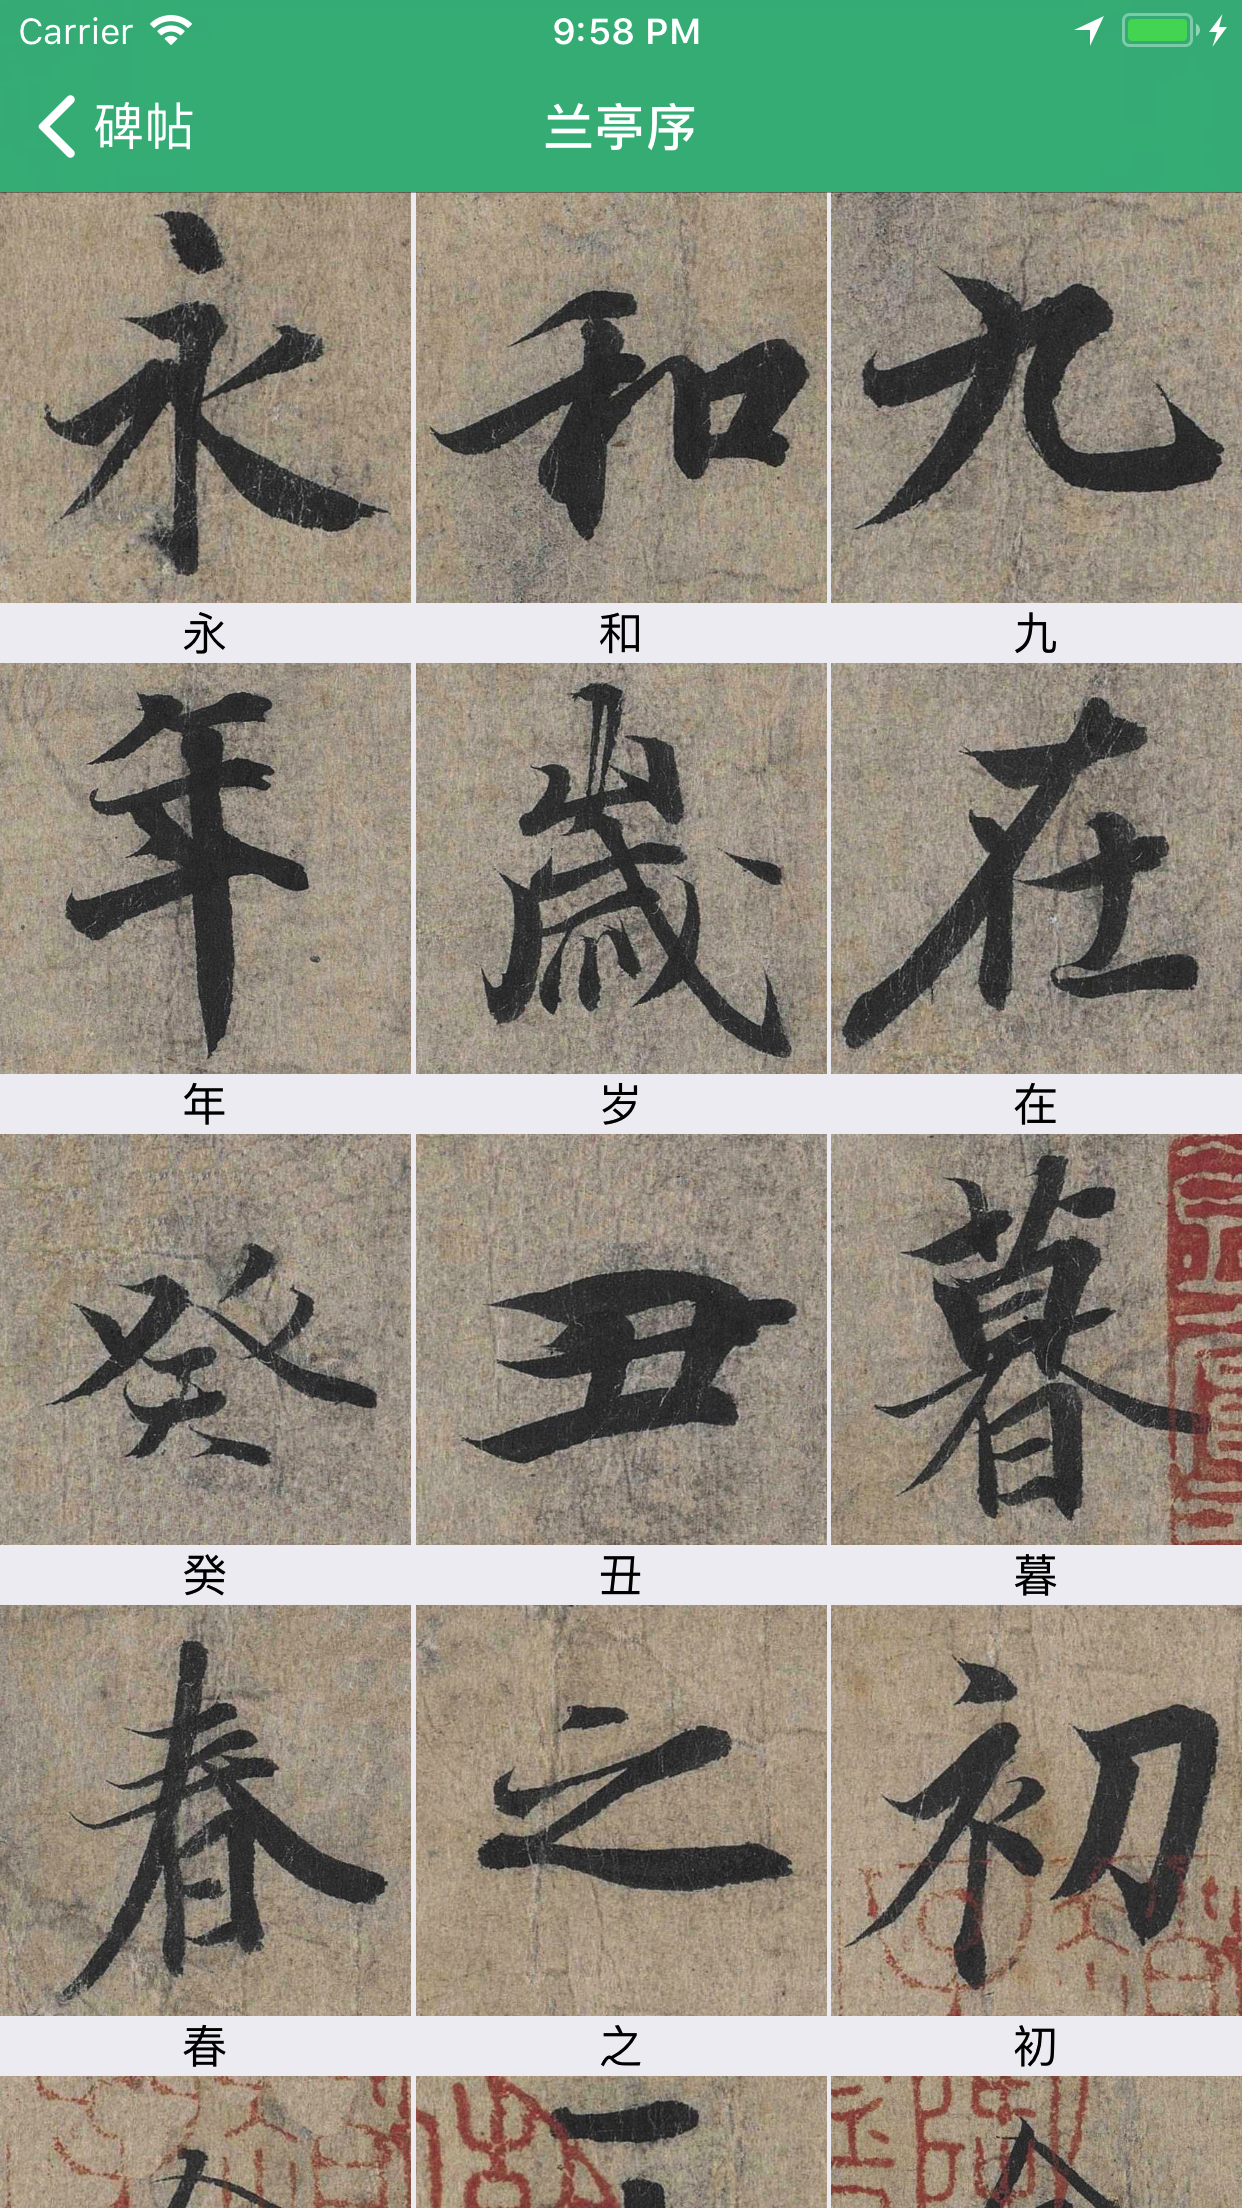 Carrier 9:58 PM
碑帖 兰亭序
永 和 九
永 和 九
年 歲 在
年 岁 在
癸 丑 暮
癸 丑 暮
春 之 初
春 之 初